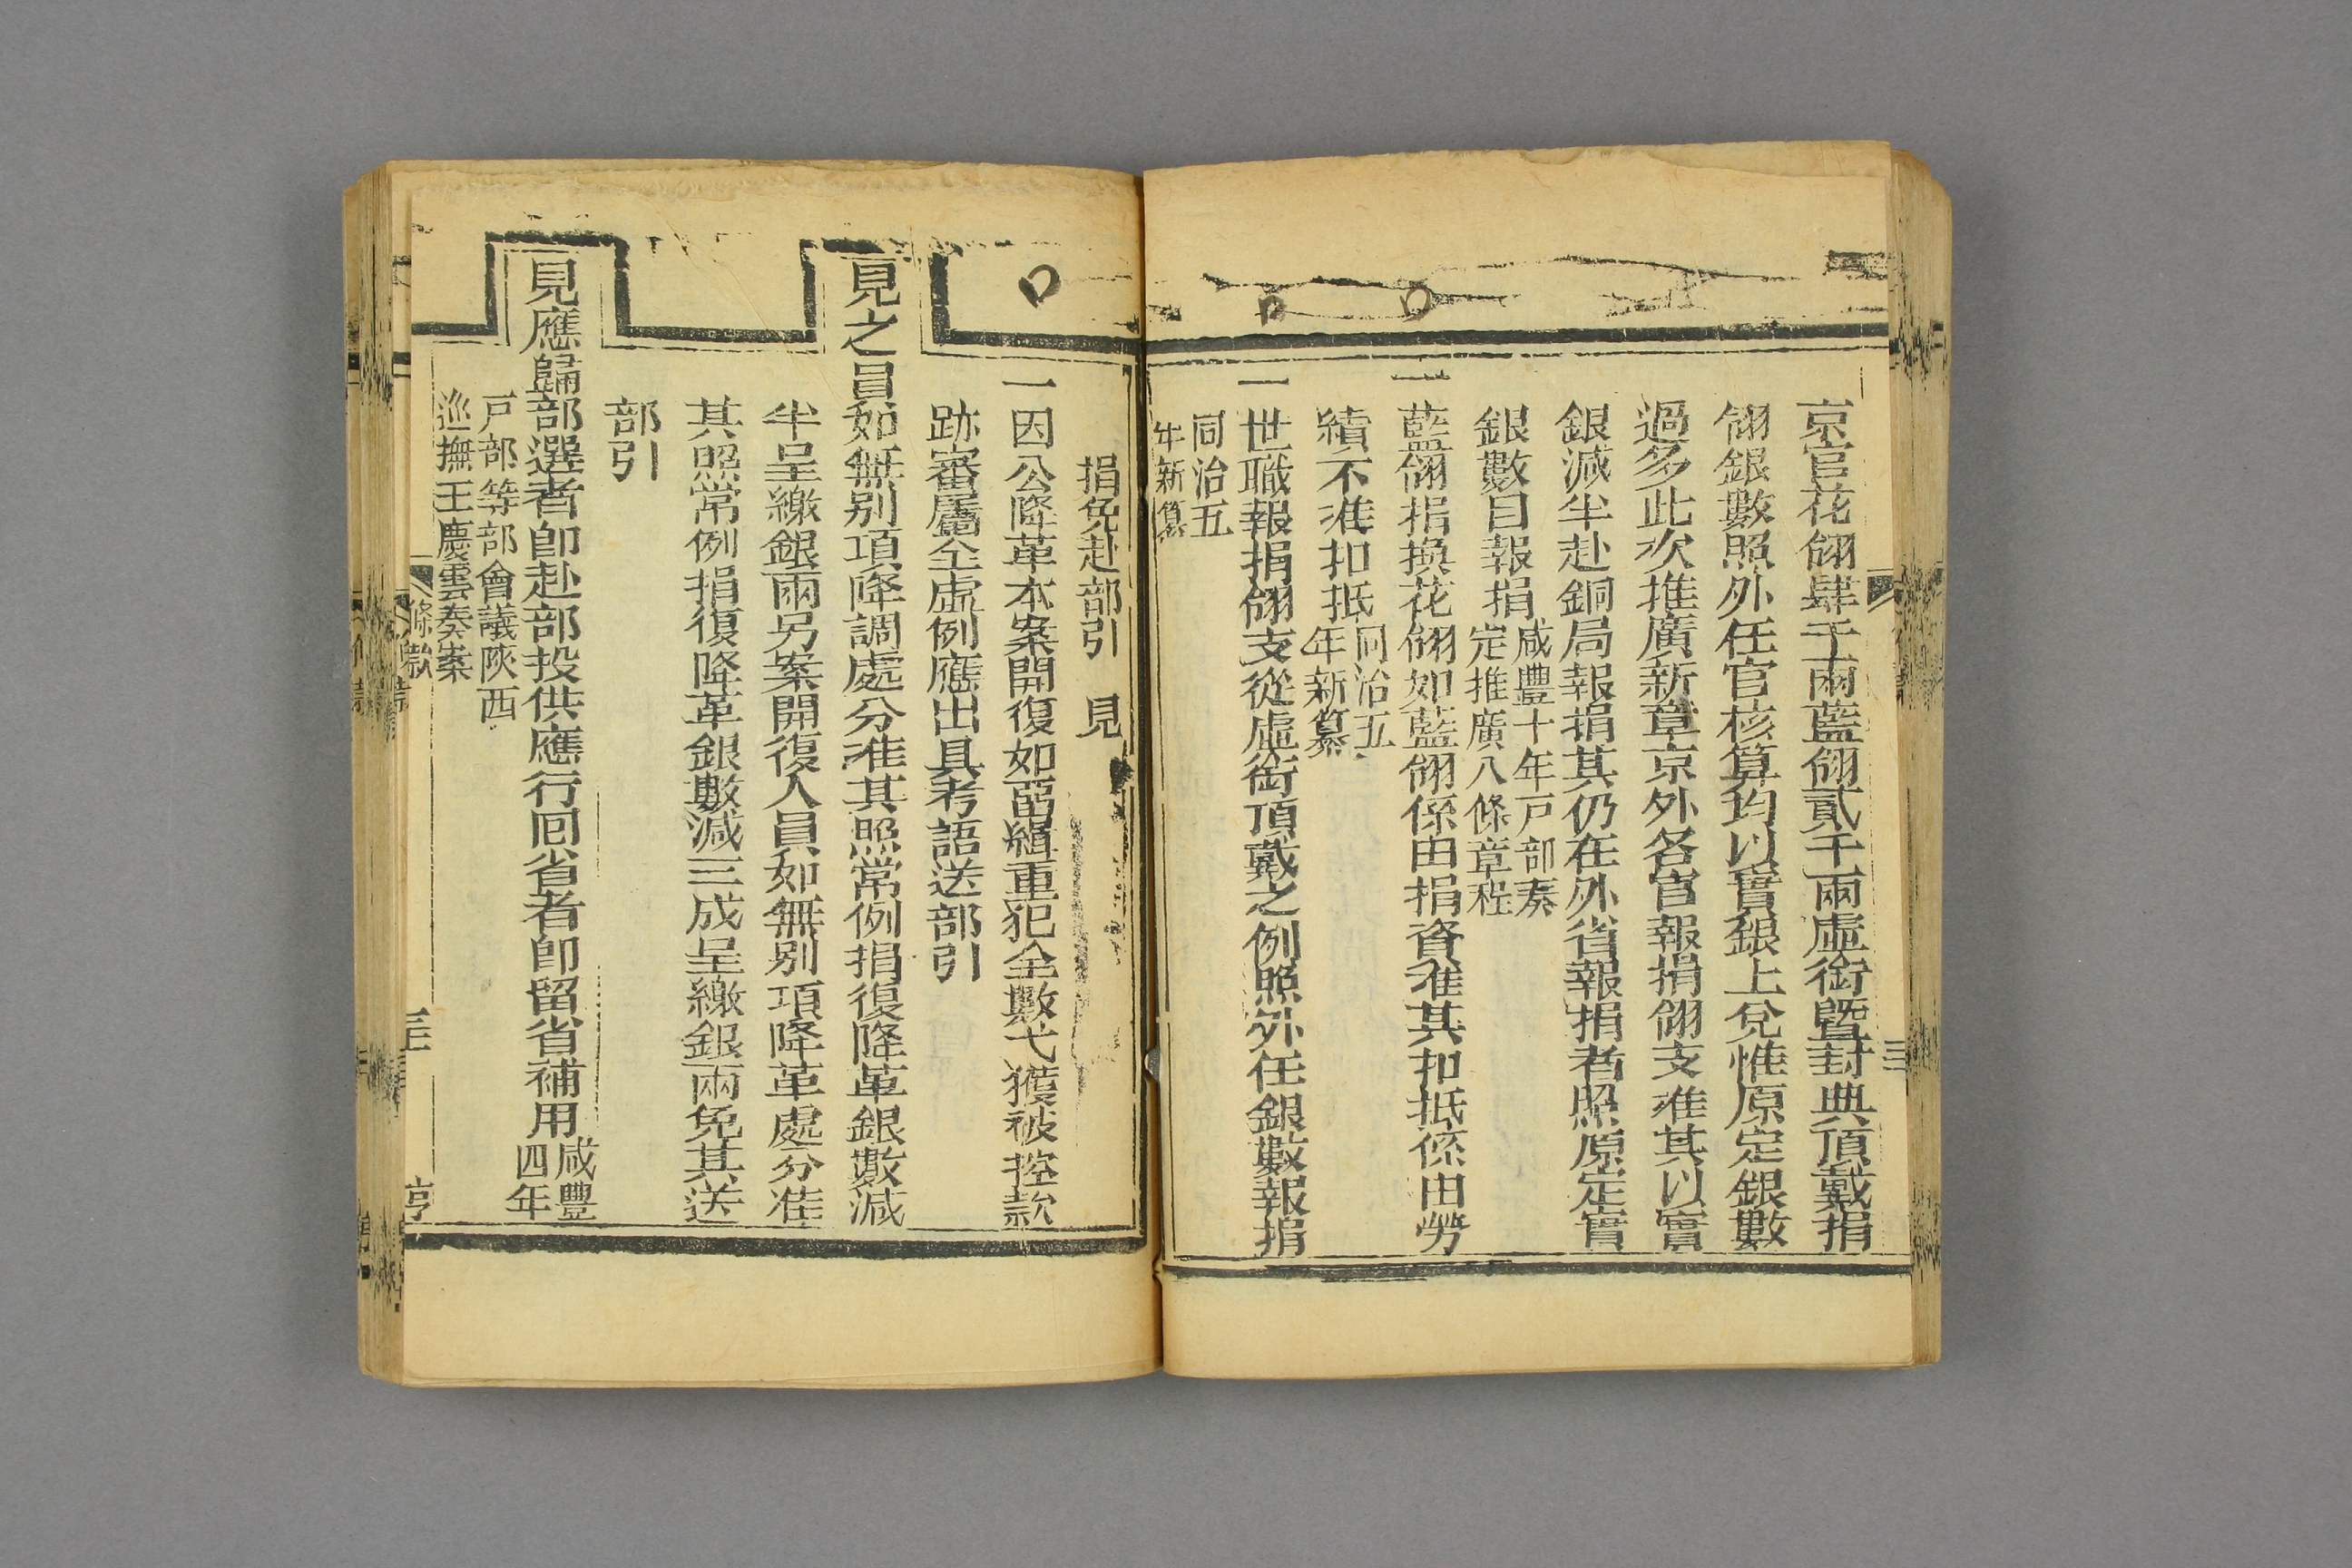 京官花翎肆千兩藍翎貳千兩虛銜暨封典頂戴捐
翎銀數照外任官核算均以實銀上兌惟原定銀數
過多此次推廣新章京外各官報捐翎支准其以實
銀減半赴銅局報捐其仍在外省報捐者照原定實
銀數目報捐咸豐十年戸部奏
定推廣八條章程
一藍翎捐換花翎如藍翎係由捐資准其扣抵係由勞
績不准扣抵同治五
年新纂
一世職報捐翎支從虛銜頂戴之例照外任銀數報捐
同治五
年新纂
捐免赴部引 見
一因公降革本案開復如畱緝重犯全數弋獲被控款
跡審屬全虛例應出具考語送部引
見之員如無别項降調處分准其照常例捐復降革銀數減
半呈繳銀兩另案開復人員如無别項降革處分准
其照常例捐復降革銀數減三成呈繳銀兩免其送
部引
見應歸部選者卽赴部投供應行回省者卽留省補用咸豐
四年
戸部等部會議陝西
巡撫王慶雲奏案
條款
三
亨